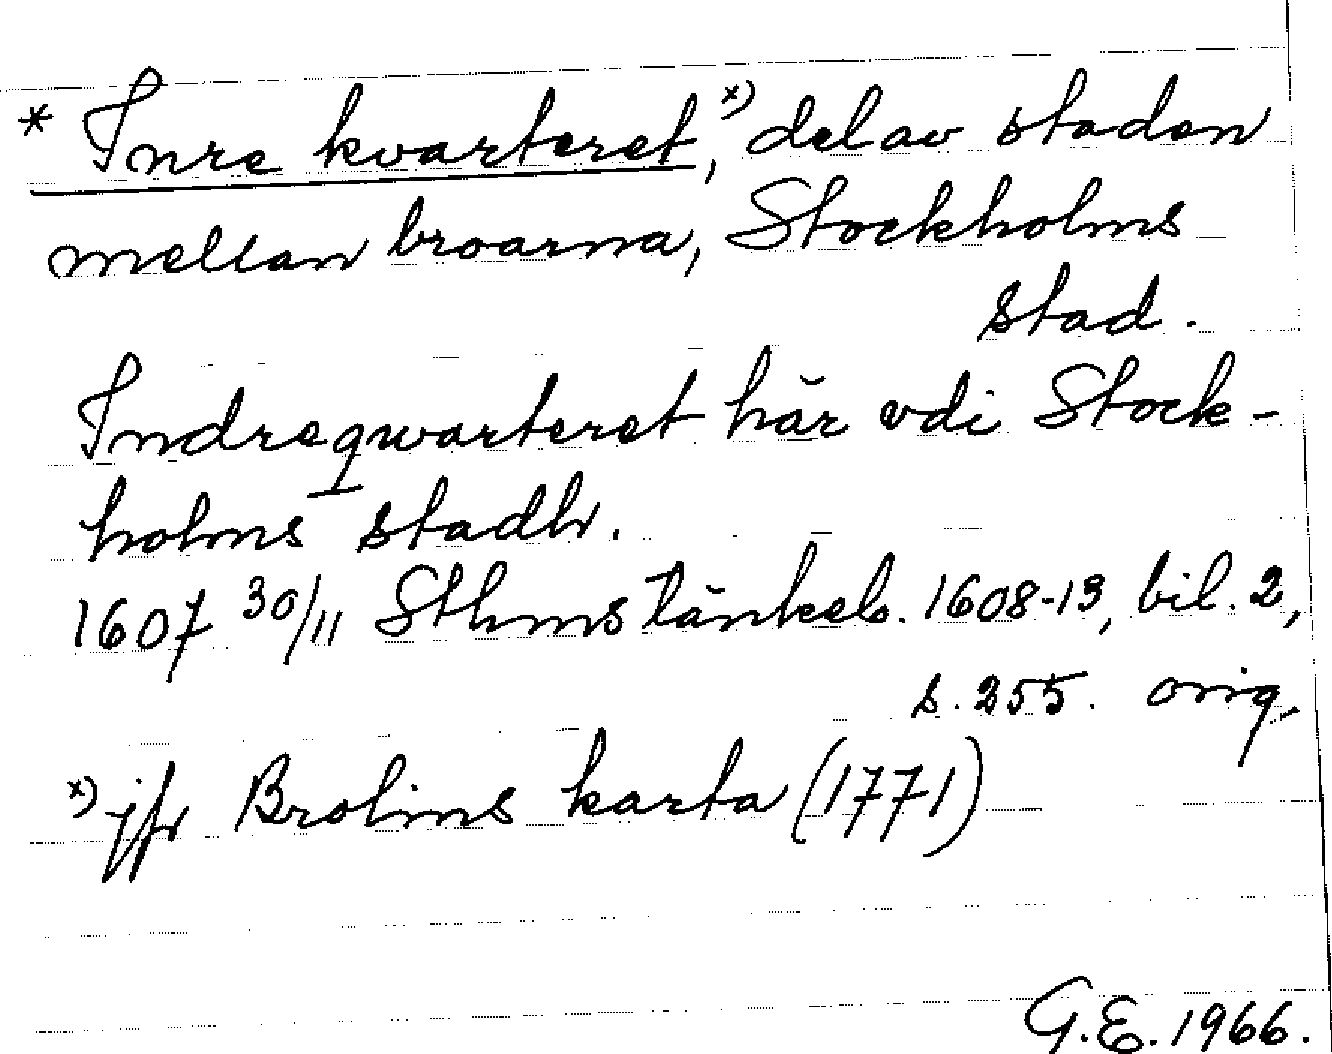 * Inre kvarteret,ˣ⁾ del av staden
mellan broarna, Stockholms
stad.
Indreqwarteret här vdi Stock-
holms stadh.
1607 30/11 Sthms tänkeb. 1608-13, bil. 2,
s. 255. orig,
ˣ⁾ jfr Brolins karta (1771)
G.E. 1966.